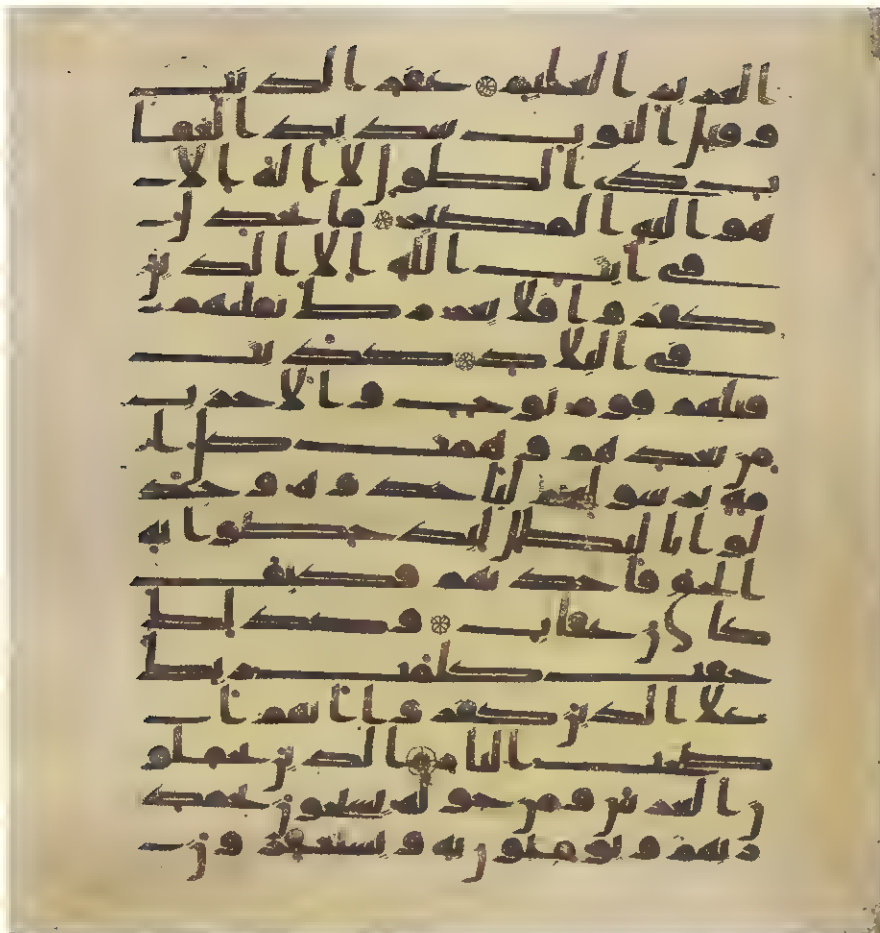 العزيز العليم غفر الذنب
و قبل التوب شديد العقا
ب ذي الطول لا اله الا
هو اليه المصير ما يجدل
في ايت الله الا الذين
كفروا فلا يغررك تقلبهم
في البلد كذبت
قبلهم قوم نوح و الاحزب
من بعدهم و همت كل ا
مة برسولهم لياخذوه و جد
لوا بالبطل ليدحضوا به
الحق فاخذتهم فكيف
كان عقاب و كذلك
حقت كلمت ربك
على الذين كفروا انهم ا
صحب النار الذين يحملو
ن العرش و من حوله يسبحون بحمد
ربهم و يومنون به و يستغفرون